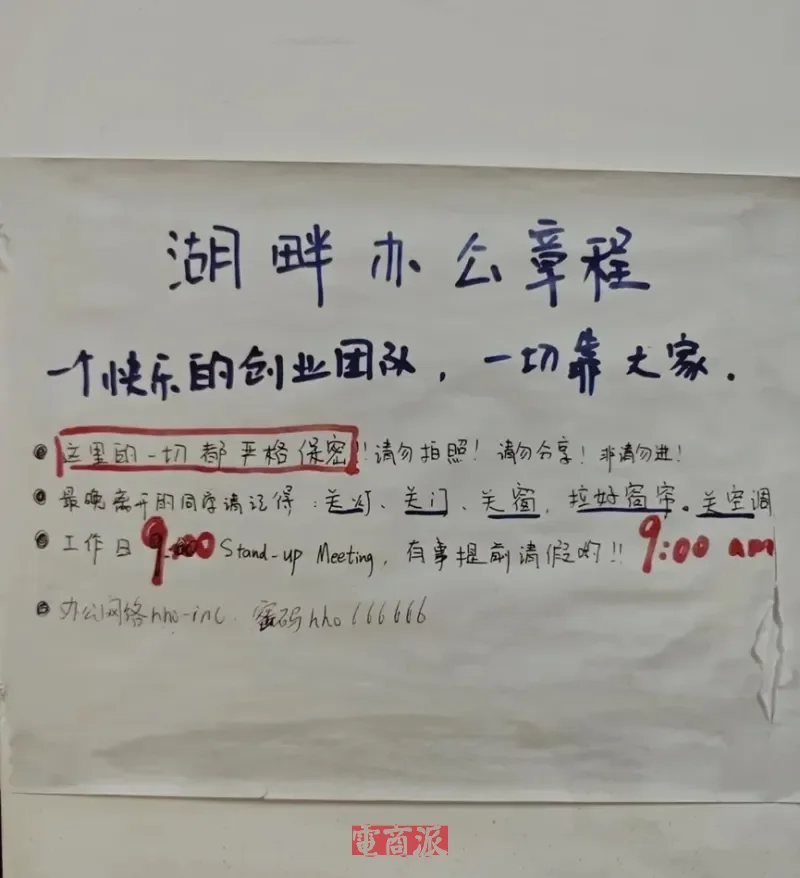 湖畔办公章程
一个快乐的创业团队，一切靠大家.
这里的一切都严格保密!!请勿拍照！请勿分享！非请勿进！
最晚离开的同学请记得：关灯、关门、关窗，拉好窗帘。关空调
工作日9:00 Stand-up Meeting, 有事提前请假哟!! 9:00 am
办公网络hho-inc. 密码hho666666
電商派